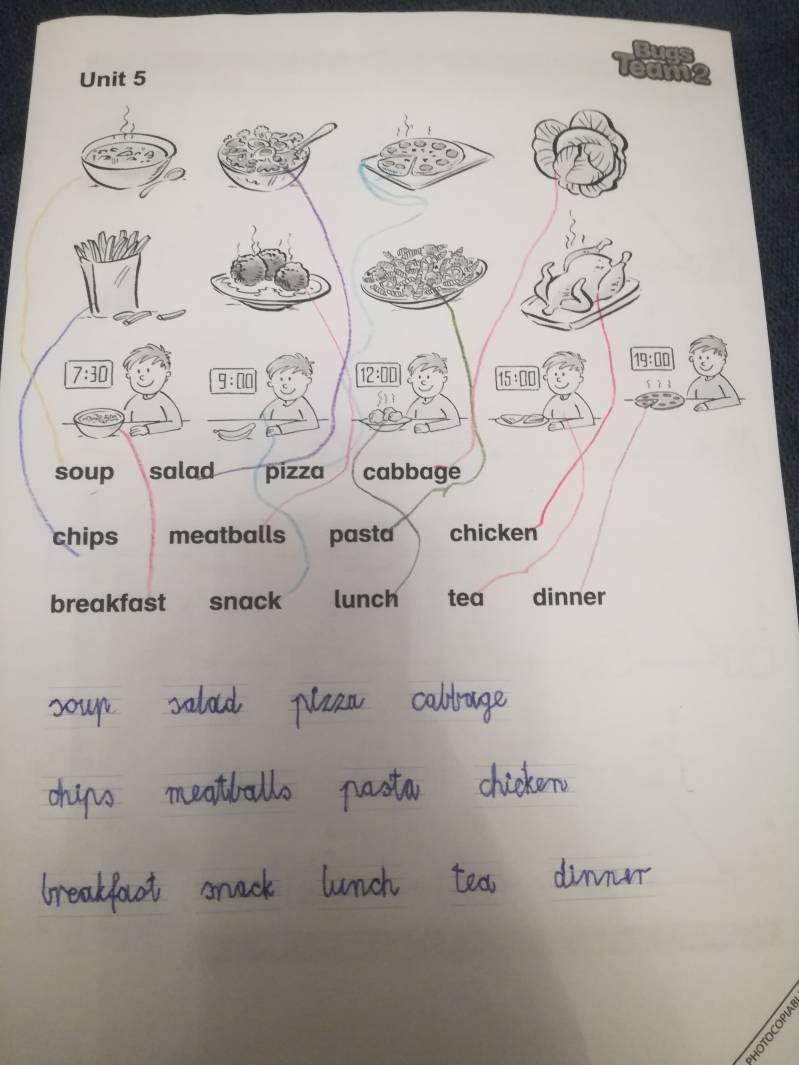 Unit 5
Bugs
Team 2
7:30
9:00
12:00
15:00
19:00
soup salad pizza cabbage
chips meatballs pasta chicken
breakfast snack lunch tea dinner
soup salad pizza cabbage
chips meatballs pasta chicken
breakfast snack lunch tea dinner